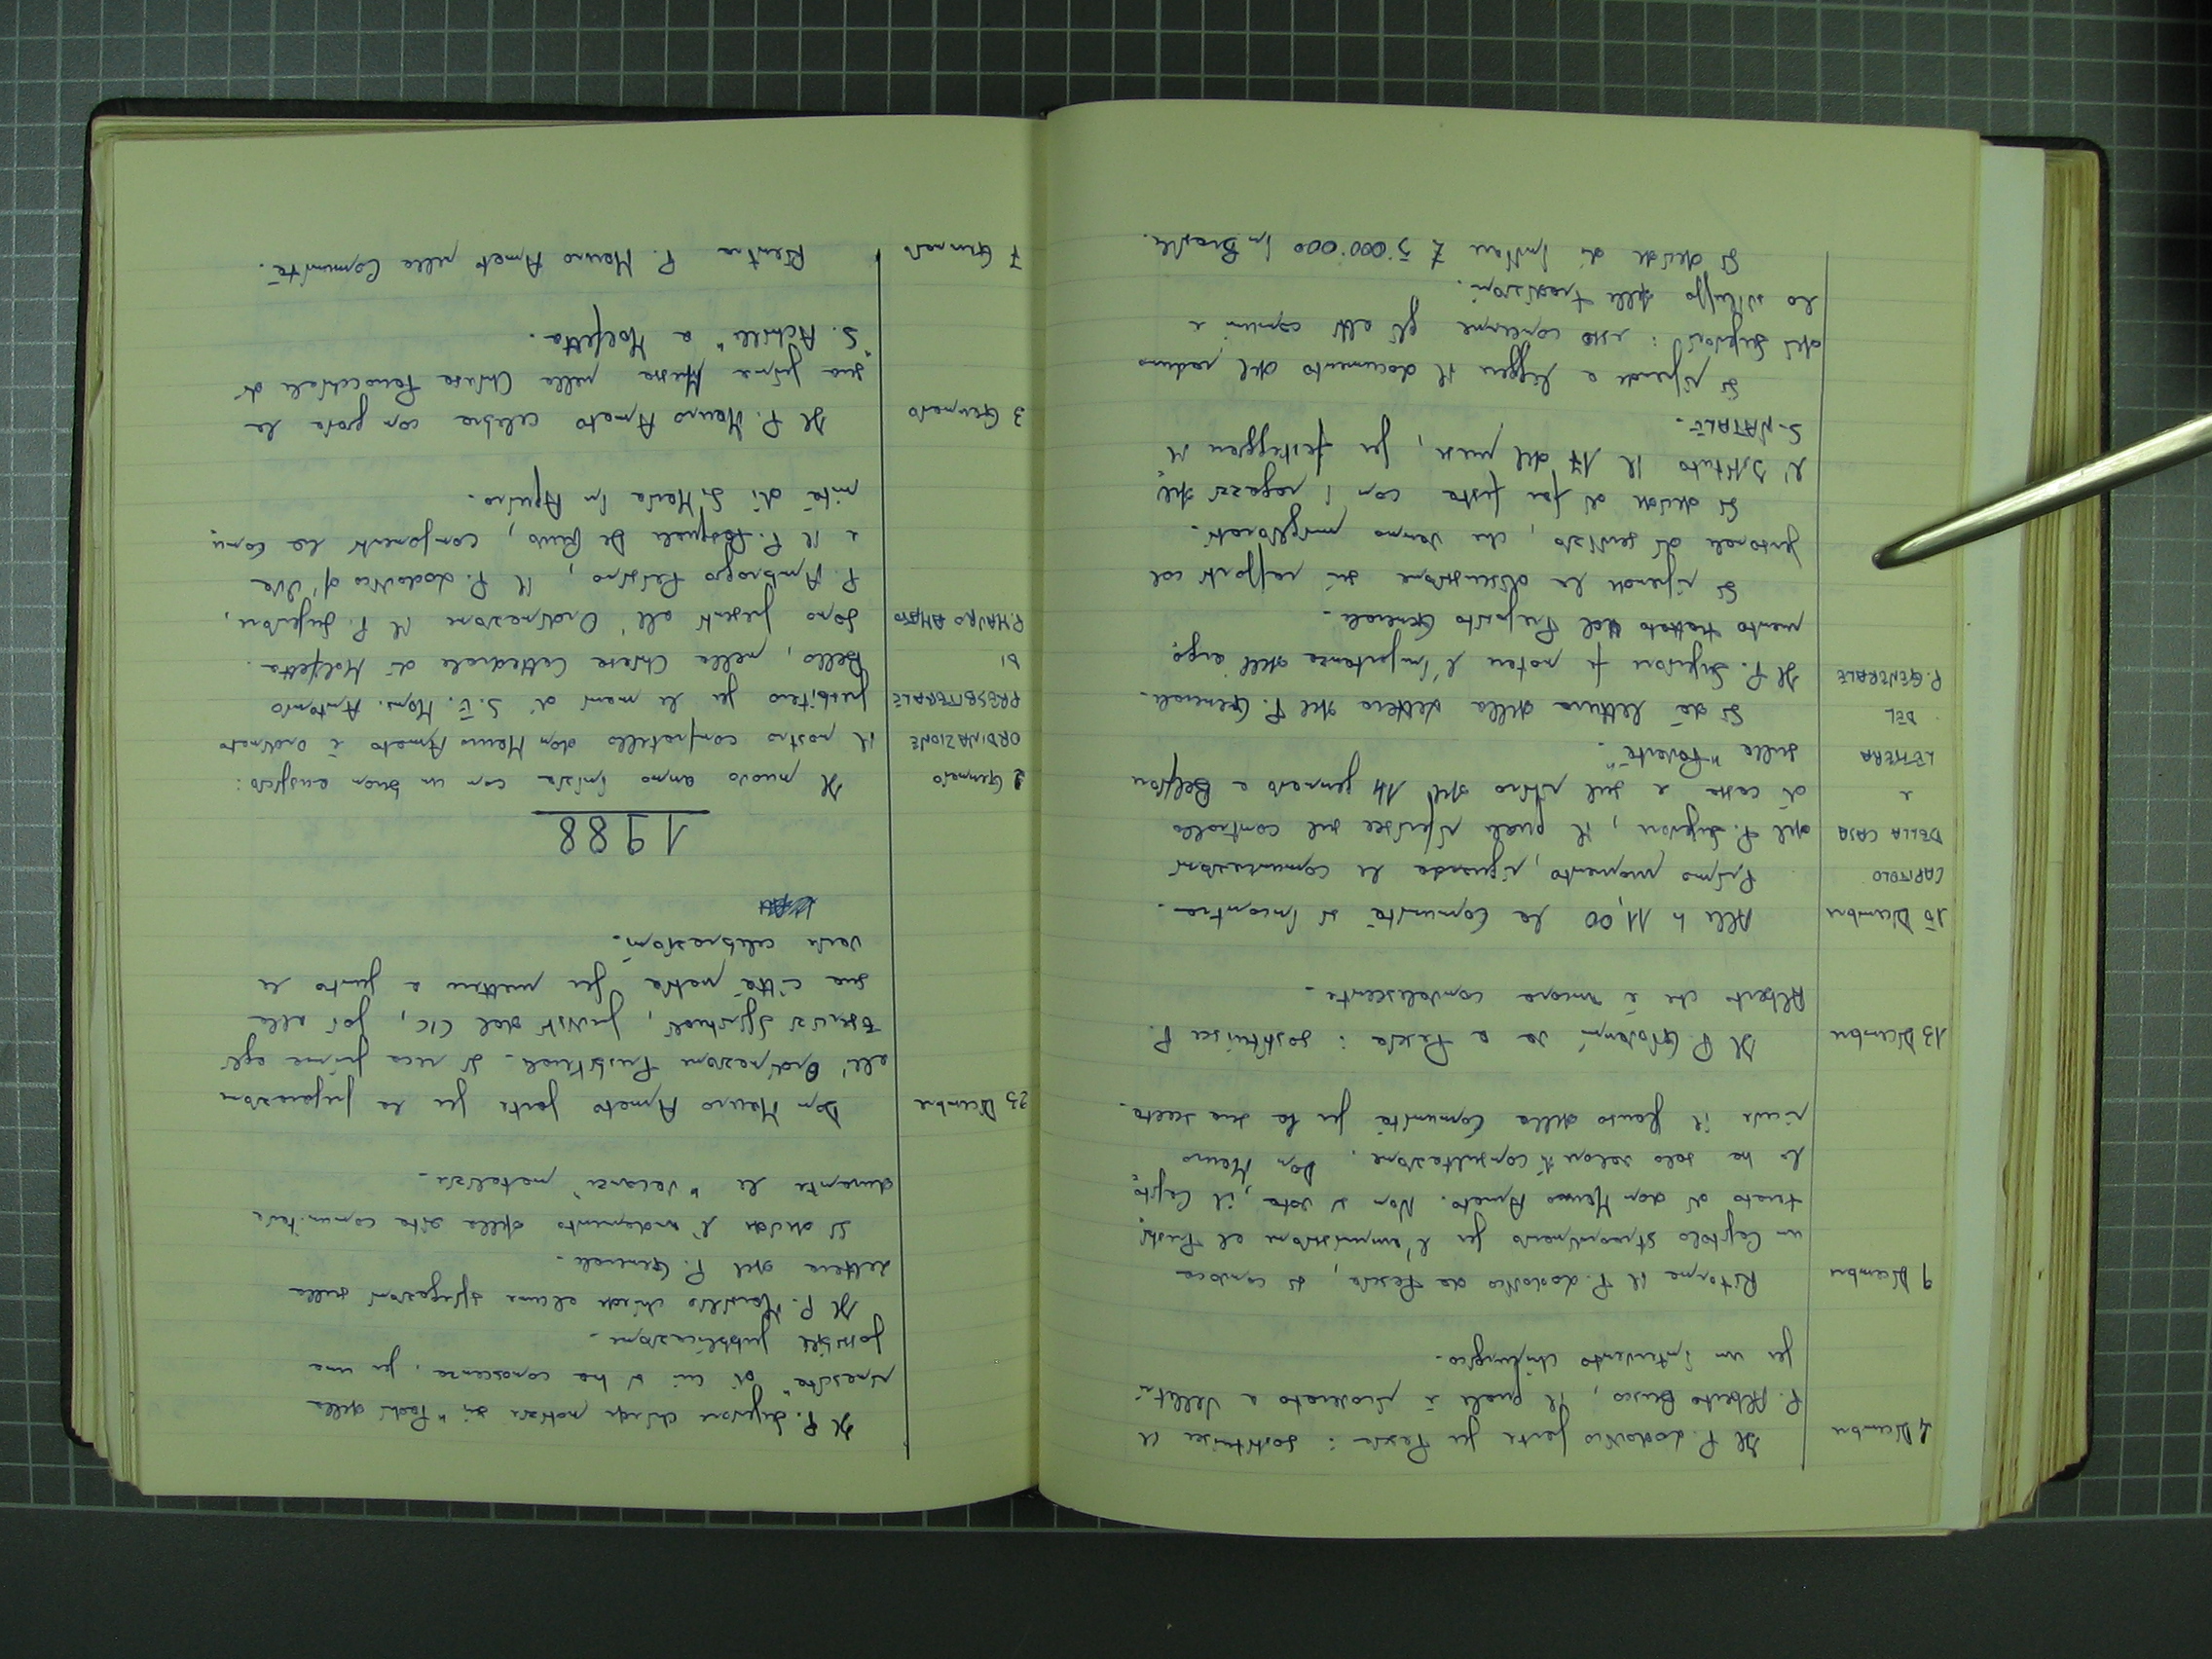 4 Dicembre Il P. Lodovico parte per Pescia: sostituisce il
P. Alberto Busco, il quale è ricoverato a Velletri
per un intervento chirurgico.
9 Dicembre Ritorna il P. Lodovico da Pescia, si convoca
un Capitolo straordinario per l'ammissione al Presbi,
terato di don Mauro Amato. Non si vota, il Capito,
lo ha solo valore di consultazione. Don Mauro
riceve il plauso della Comunità per la sua scelta.
13 Dicembre Il P. va a Pescia: sostituisce P.
Alberto che è ancora convalescente.
15 Dicembre Alle h 11,00 la Comunità si incontra.
CAPITOLO Primo momento, riguarda le comunicazioni
DELLA CASA del P. Superiore, il quale riferisce sul controllo
e di cassa e sul ritiro del 14 gennaio a Belfiore
LETTERA sulla "Povertà".
DEL Si dà lettura della Lettera del P. Generale.
P. GENERALE Il P. Superiore fa notare l'importanza dell'argo,
mento trattato dal Preposto Generale.
Si riprende la discussione sui rapporti col
personale di servizio, che vanno migliorati.
Si decide di far festa con i ragazzi del,
l'Istituto il 17 del mese, per festeggiare il
S. NATALE.
Si riprende a leggere il documento del raduno
dei Superiori: esso concerne gli atti comuni e
lo sviluppo delle tradizioni.
Si decide di inviare £ 5.000.000 in Brasile.
Il P. Superiore chiede notizie sui "Padri della
rinascita" di cui si ha conoscenza, per una
possibile pubblicazione.
Il P. chiede alcune spiegazioni sulla
Lettera del P. Generale.
Si decide l'andamento della vita comunitaria
durante le "vacanze" natalizie.
23 Dicembre Don Mauro Amato parte per la preparazione
all'Ordinazione Presbiterale. Si reca prima agli
Esercizi Spirituali, previsti dal CIC, poi alla
sua città natia per mettere a punto le
varie celebrazioni.
1988
2 Gennaio Il nuovo anno inizia con un buon auspicio:
ORDINAZIONE il nostro confratello don Mauro Amato è ordinato
PRESBITERALE presbitero per le mani di S. E. Mons. Antonio
DI Bello, nella Chiesa Cattedrale di Molfetta.
P. MAURO AMATO Sono presenti all'Ordinazione il P. Superiore,
P. Ambrogio il P. Lodovico
e il P. Pasquale De Ruvo, componenti la Comu,
nità di S. Maria in Aquiro.
3 Gennaio Il P. Mauro Amato celebra con gioia la
sua prima Messa nella Chiesa Parrocchiale di
"S. Achille" a Molfetta.
7 Gennaio Rientra P. Mauro Amato nella Comunità.